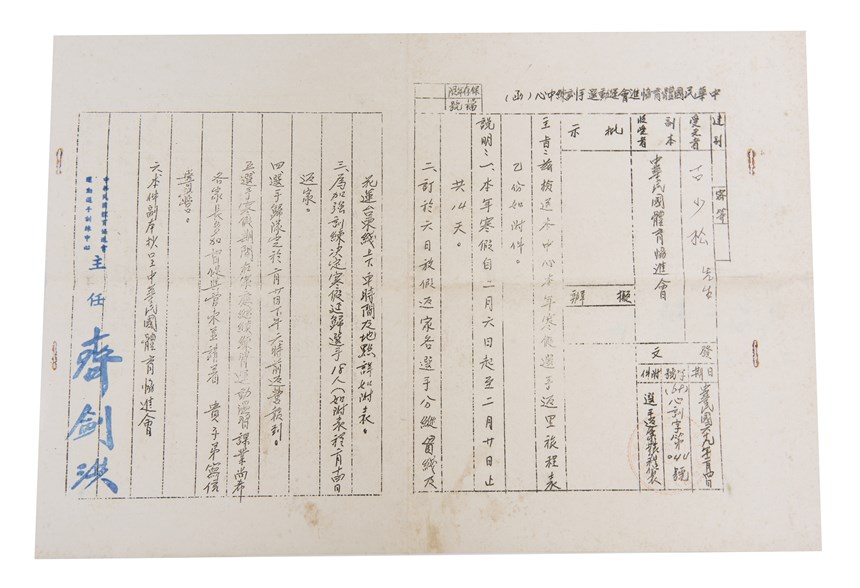 中華民國體育協進會運動選手訓練中心(函)
保存年限
號
速別
密等
受文者
古少松 先生
副本
收受者
中華民國體育協進會
批
示
擬
辦
發
文
日期
中華民國六十九年
字號
(69)心訓字第044號
附件
選手返家旅程表
主旨:茲檢送本中心本年寒假選手返里旅程表
乙份如附件。
說明:一、本年寒假自二月六日起至二月廿日止
共14天。
二、訂於六日放假返家各選手分縱貫線及
花蓮台東线上下車時間及地點詳如附表。
三、為加強訓練決定寒假延歸選手18人(如附表程
返家。
四選手歸隊定於二月廿日下午六時前返營報到。
五選手寒假期間在家應繼續練習運動溫習課業尚希
各家長多加督促與管束並請著 貴子弟寫信
六本件副本抄呈中華民國體育協進會
中華民國體育協進會
運動選手訓練中心
主任 齊劍洪